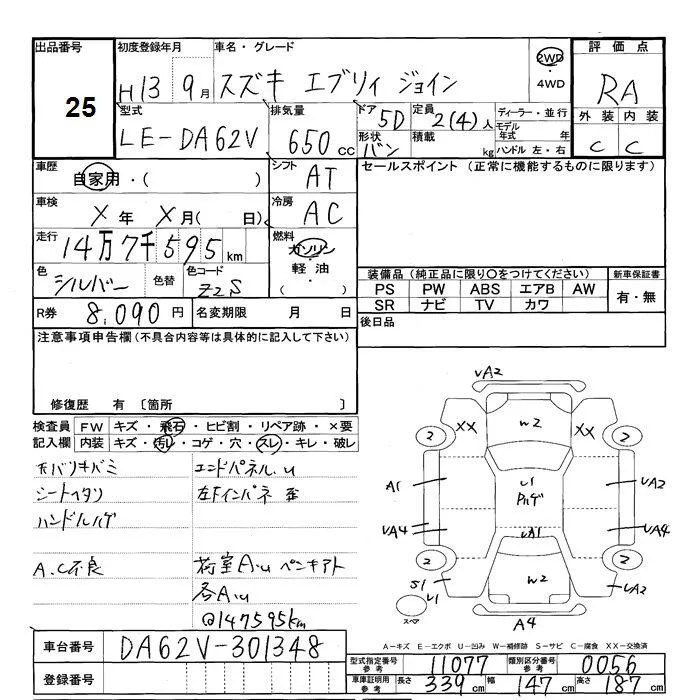 出品番号 初度登録年月 車名・グレード 2WD 評価点
25 H13年9月 スズキ エブリィ ジョイン ・4WD RA
型式 排気量 ドア 5D 定員 2(4)人 ディーラー・並行 外装 内装
LE-DA62V 650cc 形状 バン 積載 kg モデル年式 年 C C
ハンドル 左・右
車歴 自家用・( ) シフト AT セールスポイント (正常に機能するものに限ります)
車検 X年 X月( 日) 冷房 AC
走行 14万7千595km 燃料 ガソリン
軽油
・( )
色 シルバー 色替 色コード Z2S
装備品(純正品に限り○をつけてください) 新車保証書
PS PW ABS エアB AW 有・無
SR ナビ TV カワ
R券 8,090円 名変期限 月 日 後日品
注意事項申告欄(不具合内容等は具体的に記入して下さい)
修復歴 有 〔箇所 〕
検査員 FW キズ・飛石・ヒビ割・リペア跡・×要
記入欄 内装 キズ・汚レ・コゲ・穴・スレ・キレ・破レ
天バリキバミ エンドパネル.U
シートヘタリ 左Fインパネ 歪
ハンドルハゲ
A.C不良 荷室A.U ペンキアト
各A.U
@147595km
UA2
XX W2 XX
2 2
A1 U1 UA2
Pハゲ
UA4 UA1 UA4
2 2
S1 U1 W2 UA2
スペア A4
A-キズ E-エクボ U-凹み W-補修跡 S-サビ C-腐食 XX-交換済
車台番号 DA62V-301348
型式指定番号 参考 11077 類別区分番号 参考 0056
登録番号
車庫証明用 参考 長さ 339cm 幅 147cm 高さ 187cm